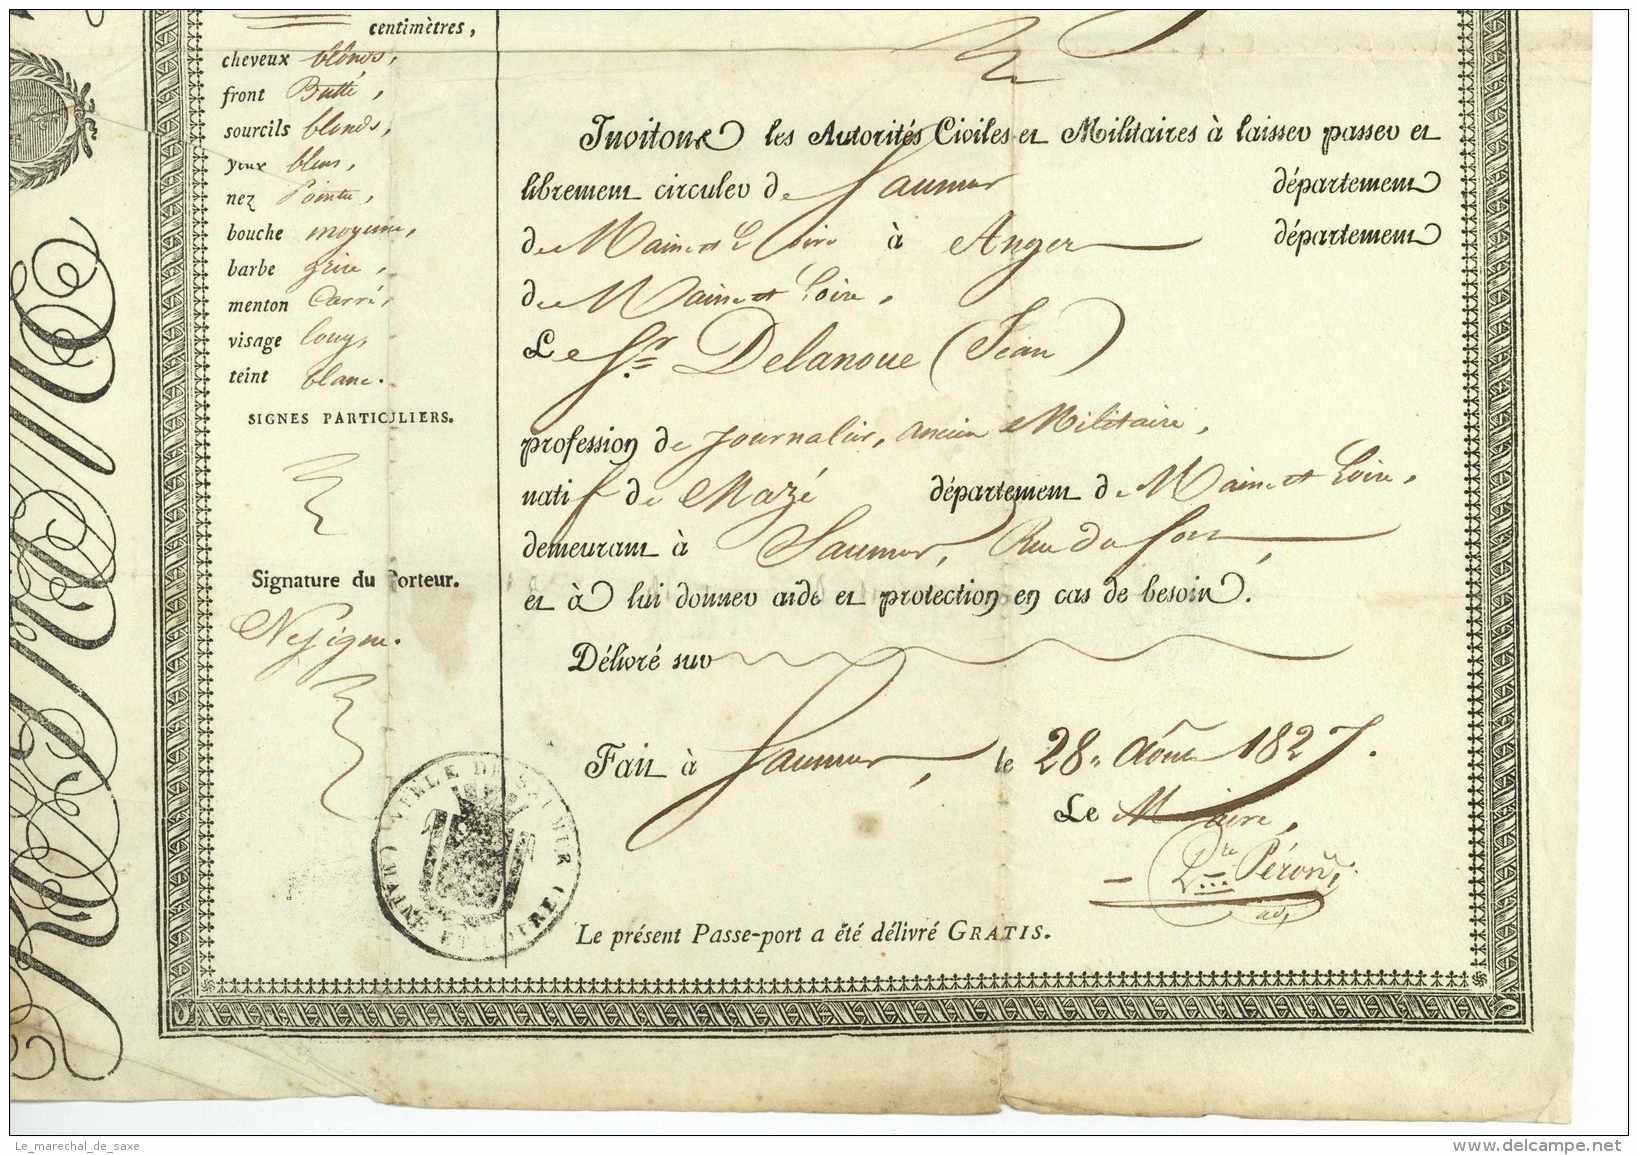 centimètres,
cheveux blonds,
front Butté,
sourcils blonds,
yeux bleus,
nez Pointu,
bouche moyenne,
barbe grise,
menton Carré,
visage long,
teint blanc.
SIGNES PARTICULIERS.
Signature du Porteur.
Ne signe.
Invitons les Autorités Civiles et Militaires à laisser passer et
librement circuler de Saumur département
de Maine et Loire à Anger département
de Maine et Loire,
Le Sr. Delanoue (Jean)
profession de Journalier, ancien Militaire,
natif de Mazé département de Maine et Loire,
demeurant à Saumur, Rue du
et à lui donner aide et protection en cas de besoin.
Délivré sur
Fait à Saumur, le 28 Août 1827.
Le Maire,
Péron,
adj
Le présent Passe-port a été délivré GRATIS.
VILLE DE SAUMUR
(MAINE ET LOIRE)
Le_marechal_de_saxe
delcampe.net